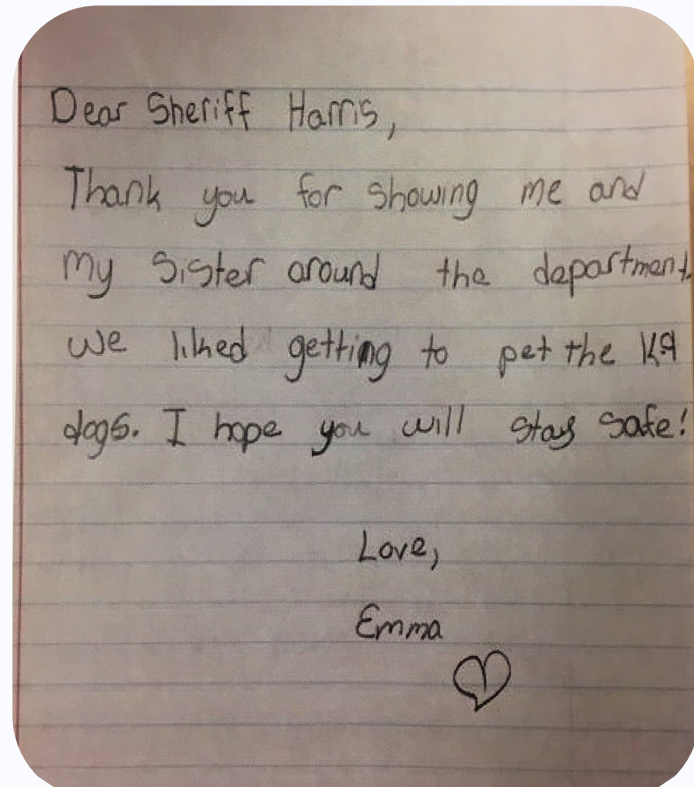 Dear Sheriff Harris,
Thank you for showing me and
my sister around the department.
we liked getting to pet the K9
dogs. I hope you will stay safe!
Love,
Emma